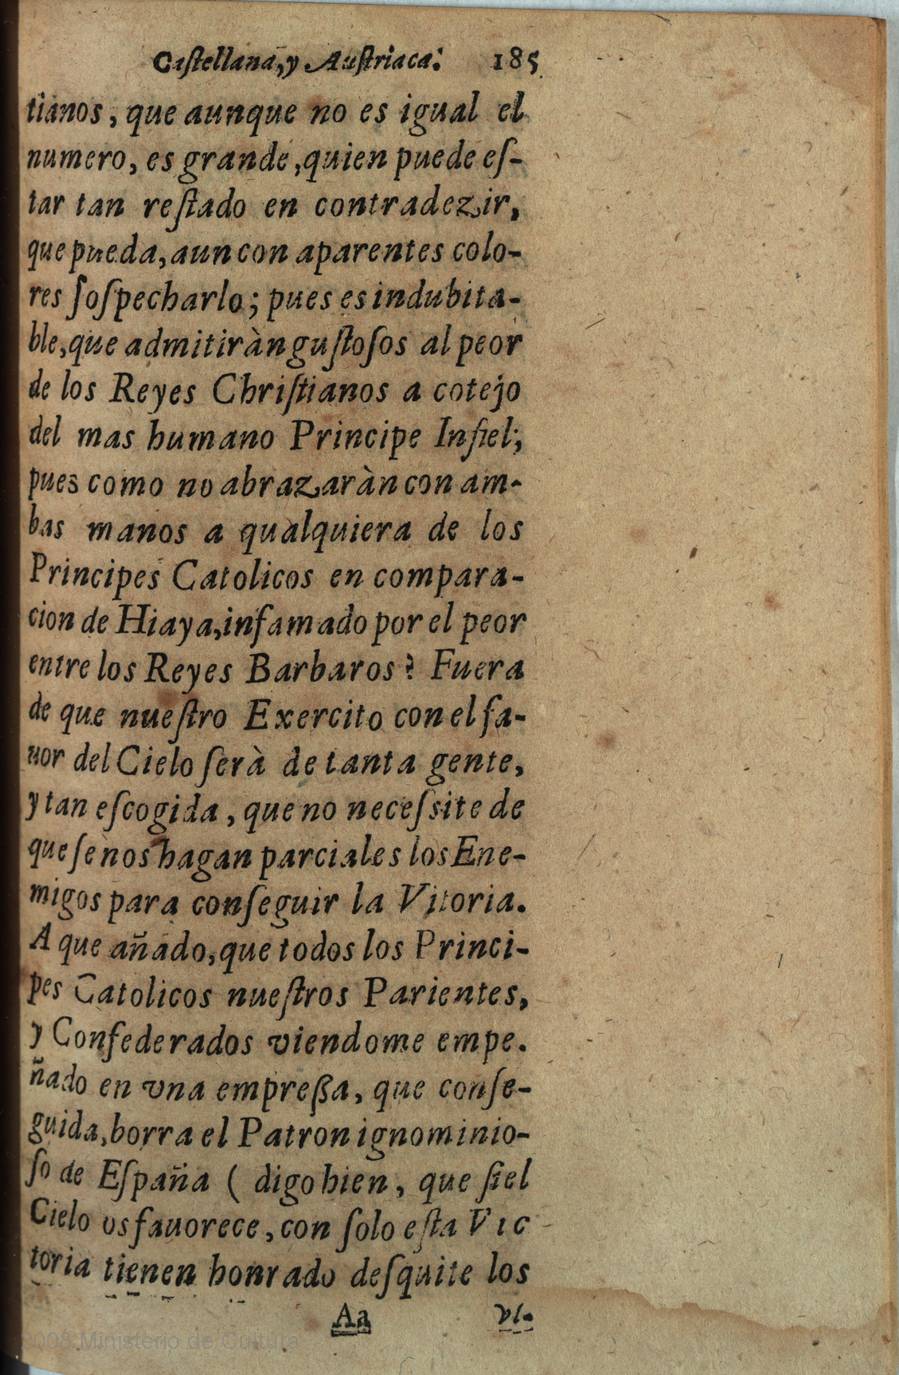 Castellana, y Austriaca. 185
tianos, que aunque no es igual el
numero, es grande, quien puede eſ-
tar tan reſtado en contradezir,
que pueda, aun con aparentes colo-
res ſoſpecharlo; pues es indubita-
ble, que admitiràn guſtoſos al peor
de los Reyes Chriſtianos a cotejo
del mas humano Principe Infiel;
pues como no abrazaràn con am-
bas manos a qualquiera de los
Principes Catolicos en compara-
cion de Hiaya, infamado por el peor
entre los Reyes Barbaros? Fuera
de que nueſtro Exercito con el fa-
uor del Cielo ſerà de tanta gente,
y tan eſcogida, que no neceſsite de
que ſe nos hagan parciales los Ene-
migos para conſeguir la Vitoria.
A que añado, que todos los Princi-
pes Catolicos nueſtros Parientes,
y Confederados viendome empe.
ñado en vna empreßa, que conſe-
guida, borra el Patron ignominio-
ſo de Eſpaña ( digo bien, que ſi el
Cielo os fauorece, con ſolo eſta Vic-
toria tienen honrado deſquite los
Aa vl-
2008 Ministerio de Cultura